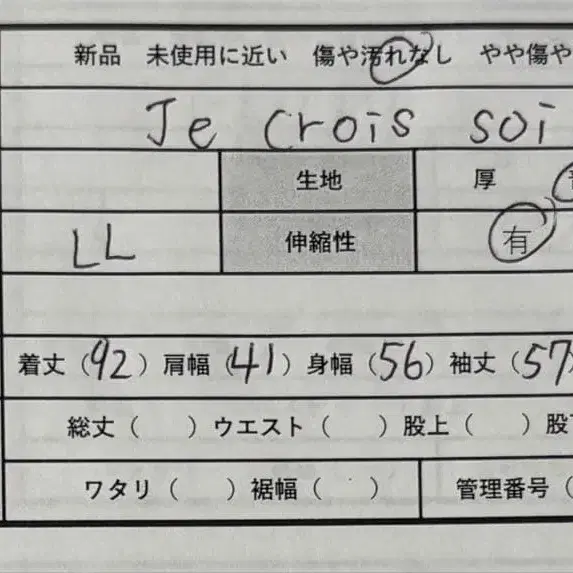 新品 未使用に近い 傷や汚れなし やや傷や
Je crois soi
生地 厚
LL 伸縮性 有
着丈（92）肩幅（41）身幅（56）袖丈（57）
総丈（ ）ウエスト（ ）股上（ ）股
ワタリ（ ）裾幅（ ） 管理番号（